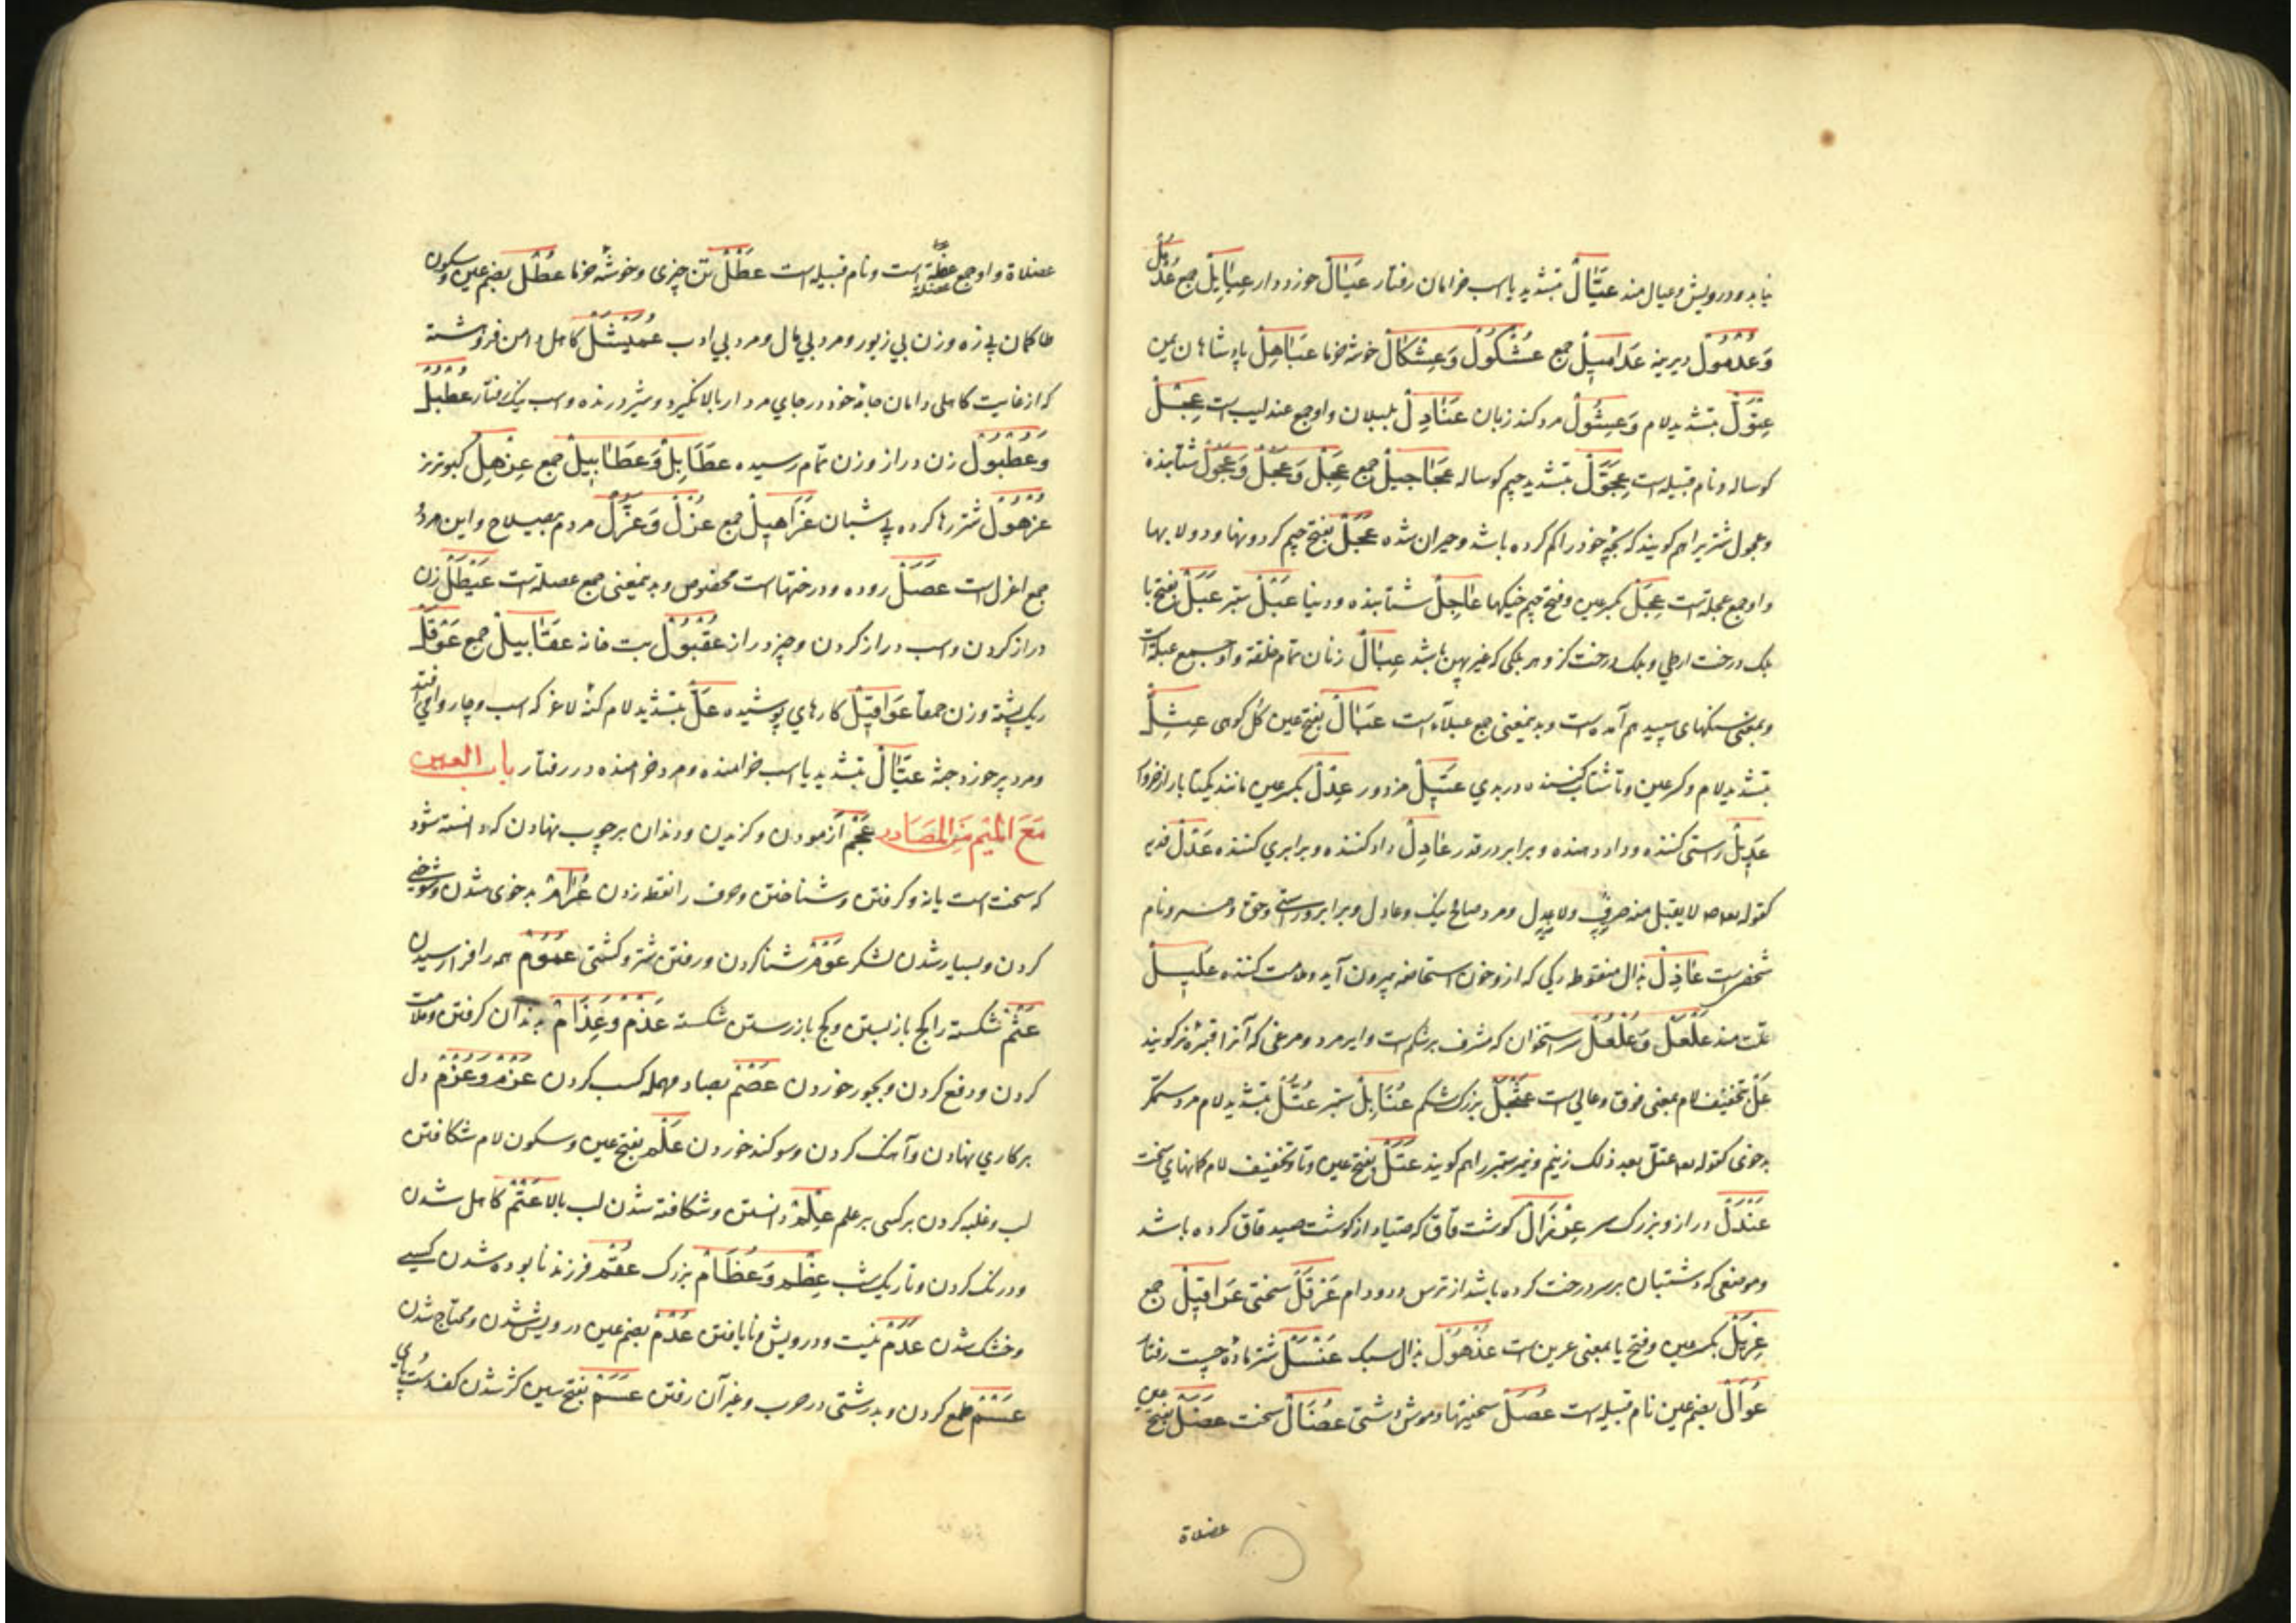 نیابد و درویش و عیال مند عَیَّالٌ بتشدید یا اسب خرامان رفتار عَیَالٌ جوز دوار عِبَابِیلٌ جمع عُدْمُلٌ
وَعُدْمُولٌ دیرینه عَدَامِیلٌ جمع عُثْکُولٌ وَعِثْکَالٌ خوشه خرما عَبَاهِلٌ پادشاهان یمن
عِثْوَلٌ بتشدید لام وَعِثُولٌ مرد کند زبان عَنَادِلٌ بلبلان و او جمع عندلیب است عِجْلٌ
کوساله و نام قبیله است عِجَّوْلٌ بتشدید جیم کوساله عَجَاجِیلٌ جمع عَجِلٌ وَعَجُلٌ وَعَجُولٌ شتابنده
و عجول شتریرا هم کویند که بچه خود را کم کرده باشد و حیران شده عَجَلٌ بفتح جیم کردونها و دولابها
و او جمع عجله است عِجَلٌ بکسر عین و فتح جیم خیکها عَاجِلٌ شتابنده و دنیا عَبْلٌ ستبر عَبَلٌ بفتح با
بلک درخت ارطی و بلک درخت کز و هر بلکی که غیر پهن باشد عِبَالٌ زنان تمام خلقة و او جمع عبلة است
و بمعنی سنکهای سپید هم آمده است و بدینمعنی جمع عبلآء است عَبَالٌ بفتح عین کل کوهی عِثِلٌّ
بتشدید لام و کسر عین و تا شتاب کننده در بدی عَتِیلٌ مزدور عِدْلٌ بکسر عین مانند یکتا بار از خروار
عَدِیلٌ راستی کننده و داد دهنده و برابر در قدر عَادِلٌ داد کننده و برابری کننده عَدْلٌ فدیه
کقوله لا یقبل منه صرف ولا عدل و مرد صالح نیک و عادل و برابر و راستی و حق و نام
شخصیست عَاذِلٌ بذال منقوطه رکی که ازو خون استحاضه بیرون آید و ملامت کننده عَلِیلٌ
علت مند عَلْعَلٌ وَعُلْعُلٌ سر استخوان که مشرف بر شکم است و ایر مرد و مرغی که آنرا قنبره نر کویند
عَلُ بتخفیف لام بمعنی فوق و عالی است عَثْجَلٌ بزرک شکم عُنَابِلٌ ستبر عُتُلٌّ بتشدید لام مرد ستمکر
بدخوی کقوله عتل بعد ذلک زنیم و نیزه ستبر را هم کویند عَتَلٌ بفتح عین و تا و تخفیف لام کمانهای سخت
عَنْدَلٌ دراز و بزرک سر عِرْزَالٌ کوشت قاق که صیاد از کوشت صید قاق کرده باشد
و موضعی که دشتبان بر سر درخت کرده باشد از ترس دد و دام عَرْقَلٌ سختی عَرَاقِیلٌ جمع
عِرْیَلٌ بکسر عین و فتح یا بمعنی عرین است عُذْهُولٌ بذال سبک عَنْسَلٌ شتر ماده چست رفتار
عُوَالٌ بضم عین نام قبیله است عُصَلٌ سختیها و موش دشتی عُضَالٌ سخت عَضَلٌ بفتح عین
عضلاة
عضلاة و او جمع عضلة است و نام قبیله است عَطْلٌ تن چیزی و خوشه خرما عُطْلٌ بضم عین و سکون
طا کمان بی زه و زن بی زیور و مرد بی مال و مرد بی ادب عُمَیْثَلٌ کاهل و دامن فرو هشته
که از غایت کاهلی دامان جامه خود در جای مردار بالا نکیرد و شیر درنده و اسب نیک رفتار عُطْبُلٌ
وَعُطْبُولٌ زن دراز و زن تمام رسیده عَطَابِلٌ وَعَطَابِیلٌ جمع عِزْهِلٌ کبوتر نر
عُزْهُولٌ شتر رها کرده بی شبان عَزَاهِیلٌ جمع عُزْلٌ وَعُزَّلٌ مردم بی سلاح و این هر دو
جمع اعزل است عَصَلٌ روده و درختها است مخصوص و بدینمعنی جمع عصلة است عَیْطَلٌ زن
دراز کردن و اسب دراز کردن و چیز دراز عُقْبُولٌ بت خانه عَقَابِیلٌ جمع عَوْقَلٌ
ریک پشته و زن حمقآ عَوَاقِیلٌ کارهای پوشیده عَلٌّ بتشدید لام کنه لاغر که اسب و چاروا می افتد
و مرد پیر حوزد جثه عَیَّالٌ بتشدید یا اسب خرامنده و مرد خرامنده در رفتار باب العین
مَعَ الْمِیْمِ مِنَ الْمَصَادِر عَجْمٌ آزمودن و کزیدن و دندان بر چوب نهادن که دانسته شود
که سخت است یا نه و کرفتن و شناختن و حرف را نقطه زدن عُرَامٌ بدخوی شدن و شوخی
کردن و بسیار شدن لشکر عَوْمٌ شنا کردن و رفتن شتر و کشتی عُمُومٌ همه را فرا رسیدن
عَثْمٌ شکسته را کج باز بستن و کج باز رستن شکسته عَذْمٌ وَعِذَامٌ بدندان کرفتن و ملامت
کردن و دفع کردن و بجور خوردن عَصْمٌ بصاد مهمله کسب کردن عَزْمٌ وَعُزْمٌ دل
بر کاری نهادن و آهنک کردن و سوکند خوردن عَلْمٌ بفتح عین و سکون لام شکافتن
لب و غلبه کردن بر کسی بر علم عِلْمٌ دانستن و شکافته شدن لب بالا عَتْمٌ کاهل شدن
و درنک کردن و تاریک شب عِظَمٌ وَعُظَامٌ بزرک عُقْمٌ فرزند نابوده شدن کسی
و خشک شدن عَدَمٌ نیست و درویش و نایافتن عُدْمٌ بضم عین درویش شدن و محتاج شدن
عَسْمٌ طمع کردن و بدرشتی در حرب و غیر آن رفتن عَسَمٌ بفتح سین کژ شدن کف دست و پای